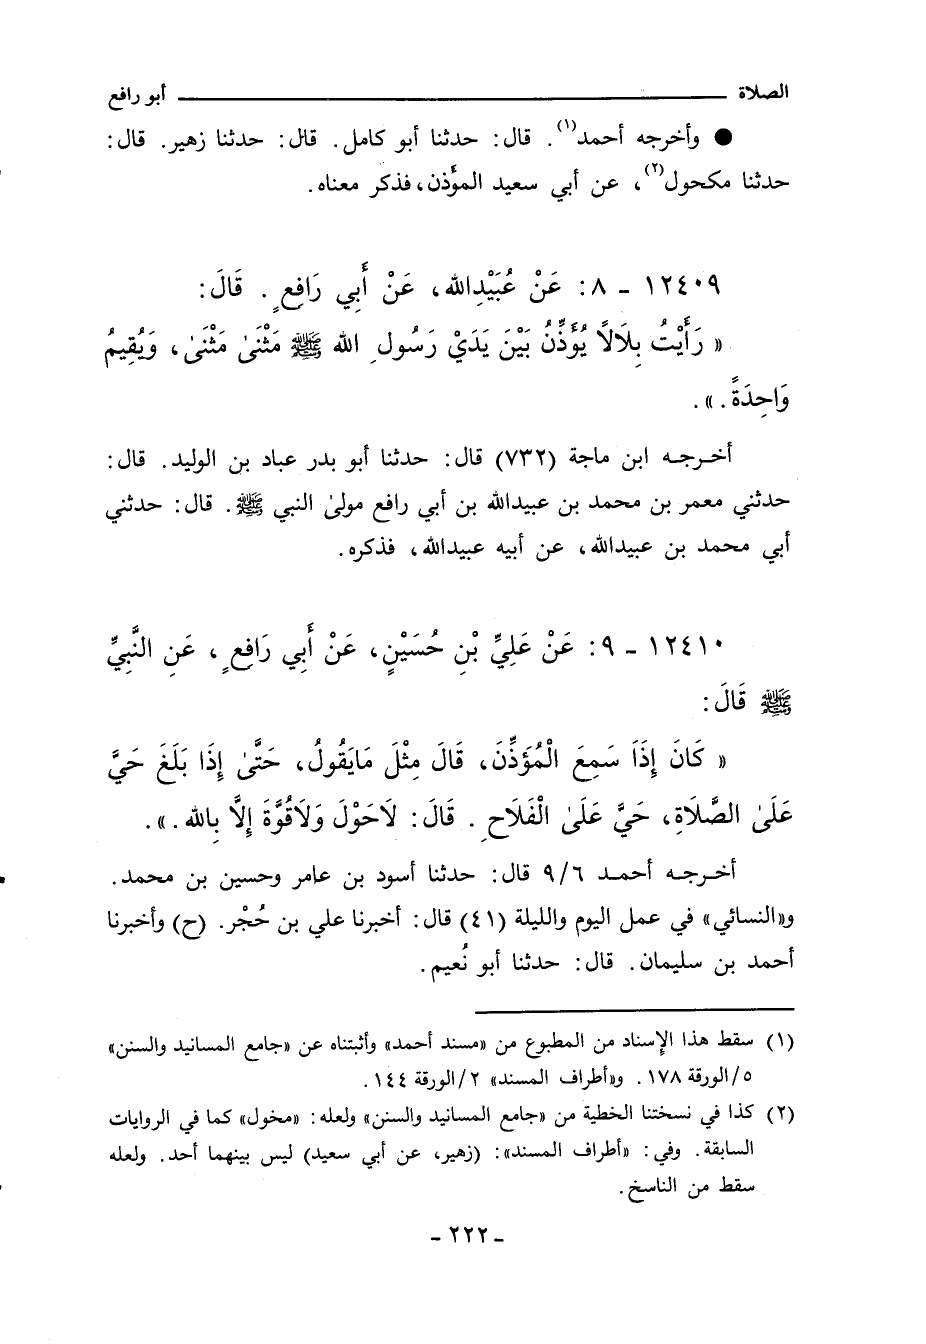 الصلاة ــــــــــ أبو رافع
● وأخرجه أحمد(١). قال: حدثنا أبو كامل. قال: حدثنا زهير. قال:
حدثنا مكحول(٢)، عن أبي سعيد المؤذن، فذكر معناه.
١٢٤٠٩ - ٨: عَنْ عُبَيْدِالله، عَنْ أَبِي رَافِعٍ. قَالَ:
« رَأَيْتُ بِلَالاً يُؤَذِّنُ بَيْنَ يَدَيْ رَسُولِ الله ﷺ مَثْنَىٰ مَثْنَىٰ، وَيُقِيمُ
وَاحِدَةً. ».
أخرجه ابن ماجة (٧٣٢) قال: حدثنا أبو بدر عباد بن الوليد. قال:
حدثني معمر بن محمد بن عبيدالله بن أبي رافع مولىٰ النبي ﷺ. قال: حدثني
أبي محمد بن عبيدالله، عن أبيه عبيدالله، فذكره.
١٢٤١٠ - ٩: عَنْ عَلِيِّ بْنِ حُسَيْنٍ، عَنْ أَبِي رَافِعٍ، عَنِ النَّبِيِّ
ﷺ قَالَ:
« كَانَ إِذَا سَمِعَ الْمُؤَذِّنَ، قَالَ مِثْلَ مَايَقُولُ، حَتَّىٰ إِذَا بَلَغَ حَيَّ
عَلَىٰ الصَّلَاةِ، حَيَّ عَلَىٰ الْفَلَاحِ. قَالَ: لَاحَوْلَ وَلَاقُوَّةَ إِلَّا بِالله. ».
أخرجه أحمد ٩/٦ قال: حدثنا أسود بن عامر وحسين بن محمد.
و«النسائي» في عمل اليوم والليلة (٤١) قال: أخبرنا علي بن حُجْر. (ح) وأخبرنا
أحمد بن سليمان. قال: حدثنا أبو نُعيم.
(١) سقط هذا الإسناد من المطبوع من «مسند أحمد» وأثبتناه عن «جامع المسانيد والسنن»
٥/الورقة ١٧٨. و«أطراف المسند» ٢/الورقة ١٤٤.
(٢) كذا في نسختنا الخطية من «جامع المسانيد والسنن» ولعله: «مخول» كما في الروايات
السابقة. وفي: «أطراف المسند»: (زهير، عن أبي سعيد) ليس بينهما أحد. ولعله
سقط من الناسخ.
- ٢٢٢ -